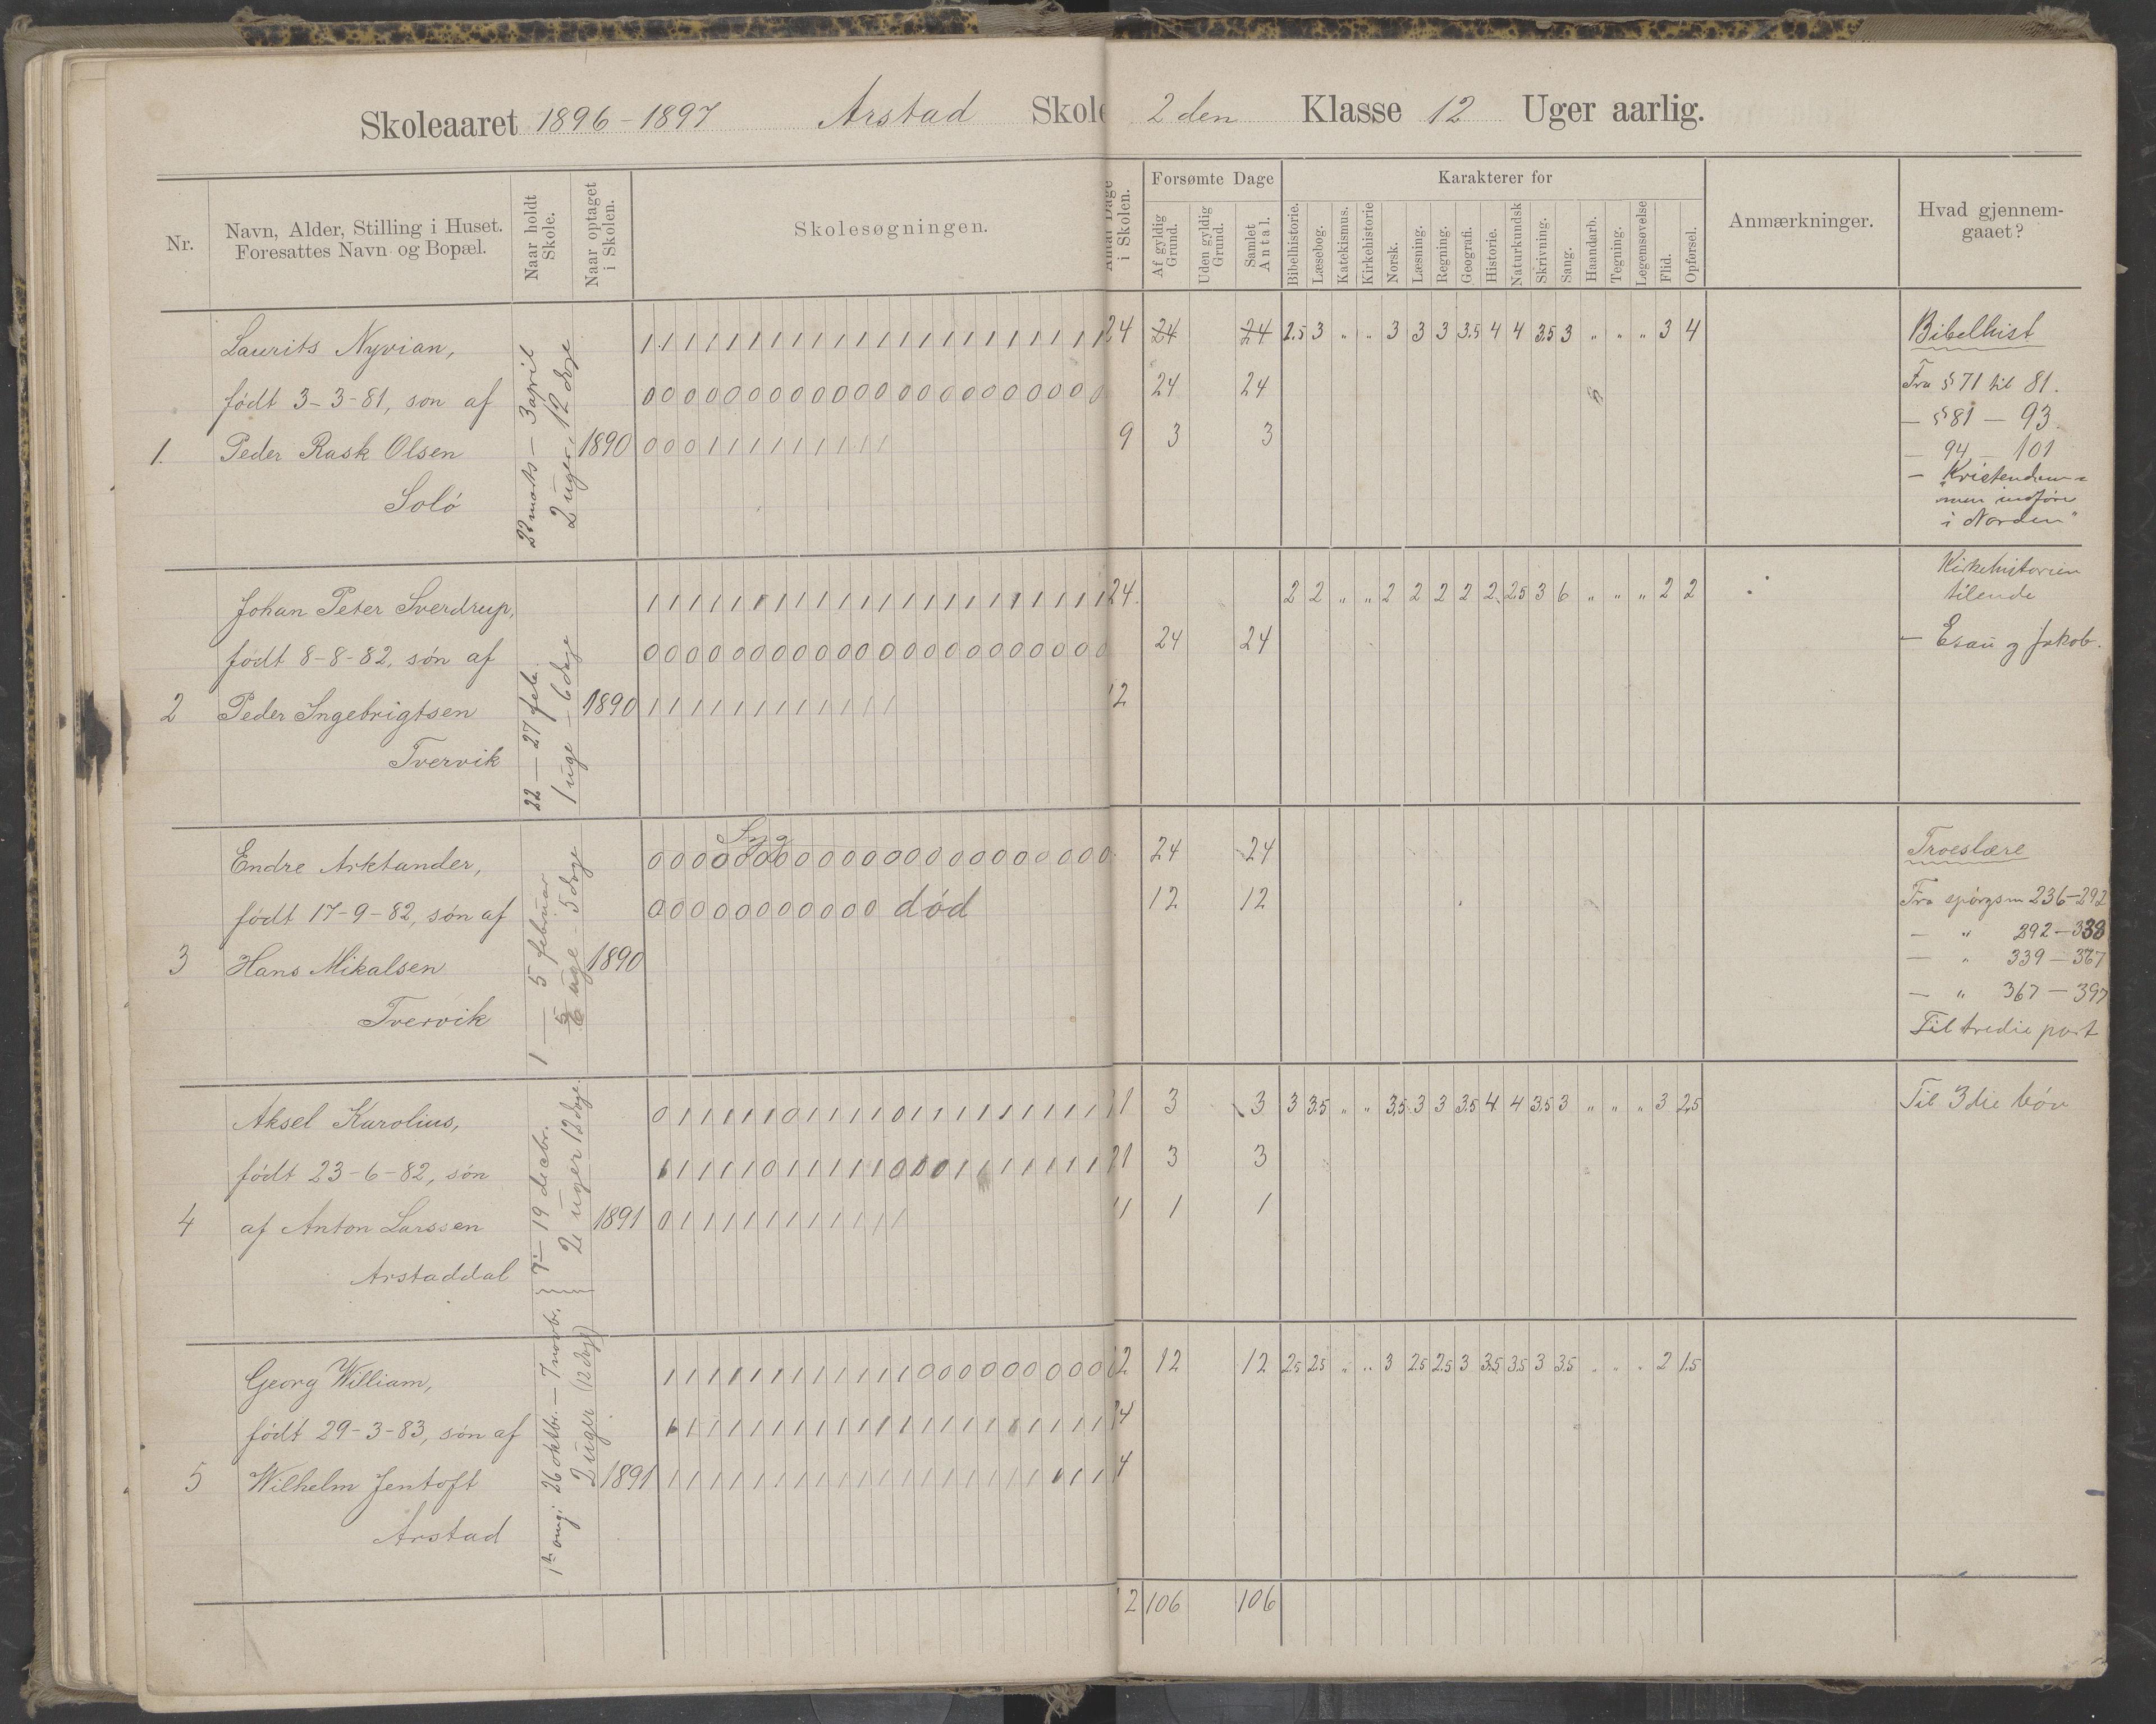 Skoleaaret 1896-1897 Arstad Skole 2den Klasse 12 Uger aarlig.
Nr.
Navn, Alder, Stilling i Huset.
Foresattes Navn og Bopæl.
Naar holdt Skole.
Naar optaget i Skolen.
Skolesøgningen.
Antal Dage i Skolen.
Forsømte Dage
Af gyldig Grund.
Uden gyldig Grund.
Samlet Antal.
Karakterer for
Bibelhistorie.
Læsebog.
Katekismus.
Kirkehistorie
Norsk.
Læsning.
Regning.
Geografi.
Historie.
Naturkundsk
Skrivning.
Sang.
Haandarb.
Tegning.
Legemsøvelse
Flid.
Opførsel.
Anmærkninger.
Hvad gjennem-
gaaet?
Laurits Nyvian, 1 1 1 1 1 1 1 1 1 1 1 1 1 1 1 1 1 1 1 1 1 1 24 24 24 2.5 3 " " 3 3 3 3.5 4 4 3.5 3 " " " 3 4 Bibelhist
født 3-3-81, søn af 0 0 0 0 0 0 0 0 0 0 0 0 0 0 0 0 0 0 0 0 0 0 24 24 Fra § 71 til 81.
— § 81 — 93.
1. Peder Rask Olsen 1890 0 0 0 1 1 1 1 1 1 1 1 1 9 3 3
— 94 — 101
Solö
— "Kristendom-
men indføres
i Norden"
22 marts — 3 april
2 uger, 12 dage
Johan Peter Sverdrup, 1 1 1 1 1 1 1 1 1 1 1 1 1 1 1 1 1 1 1 1 1 1 24. 2 2 " " 2 2 2 2 2. 2.5 3 6 " " " 2 2 Kirkehistorien
tilende
født 8-8-82, søn af 0 0 0 0 0 0 0 0 0 0 0 0 0 0 0 0 0 0 0 0 0 0 24 24 — Esau og Jakob.
2 Peder Ingebrigtsen 1890 1 1 1 1 1 1 1 1 1 1 1 1 12
Tvervik
22 — 27 feb.
1 uge - 6 dage
Syg
Endre Arktander, 0 0 0 0 0 0 0 0 0 0 0 0 0 0 0 0 0 0 0 0 0 0 24 24 Troeslære
født 17-9-82, søn af 0 0 0 0 0 0 0 0 0 0 0 død 12 12 Fra spörgsm 236-292
— " 292 — 338
3 Hans Mikalsen 1890 — " 339 — 367
— " 367 — 397
Tvervik Til tredie part
1 — 5 februar
uge - 5 dage
Aksel Karolius, 0 1 1 1 1 1 0 1 1 1 1 0 1 1 1 1 1 1 1 1 1 21 3 3 3 3.5 " " 3.5 3 3 3.5 4 4 3.5 3 " " " 3 2.5 Til 3die bön
født 23-6-82, søn 1 1 1 1 1 0 1 1 1 1 1 0 0 0 1 1 1 1 1 1 1 21 3 3
4 af Anton Larssen 1891 0 1 1 1 1 1 1 1 1 1 1 1 11 1 1
Arstaddal
7 — 19 decbr.
2 uger 12 dage
Georg William, 1 1 1 1 1 1 1 1 1 1 1 1 0 0 0 0 0 0 0 0 0 12 12 12 2.5 2.5 " " 3 2.5 2.5 3 3.5 3.5 3 3.5 " " " 2 1.5
født 29-3-83, søn af 1 1 1 1 1 1 1 1 1 1 1 1 1 1 1 1 1 1 1 1 1 24
5 Wilhelm Jentoft 1891 1 1 1 1 1 1 1 1 1 1 1 1 1 1 1 1 1 1 1 1 1 4
Arstad
26 oktbr. — 7 novbr.
2 uger (12 dage)
2 106 106